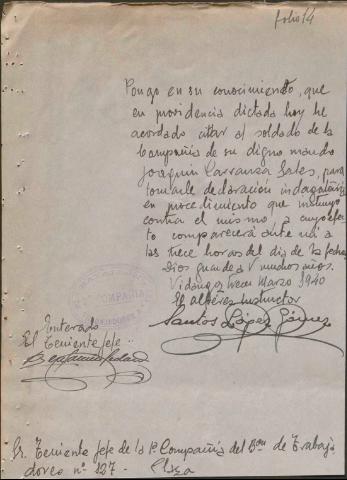 folio 14
Pongo en su conocimiento, que
en providencia dictada hoy he
acordado citar al soldado de la
Compañia de su digno mando
Joaquin Carranza Sales, para
tomarle declaración indagatoria
en procedimiento que instruyo
contra el mismo, a cuyo efec
to comparecerá ante mi a
las trece horas del dia de la fecha
Dios guarde a V. muchos años.
trece Marzo 1940
El alférez instructor
Santos López Gómez
Enterado
El Teniente Jefe
COMPAÑIA
Sr. Teniente Jefe de la 1ª Compañia del Bon de Trabaja
dores nº 127.- Plaza